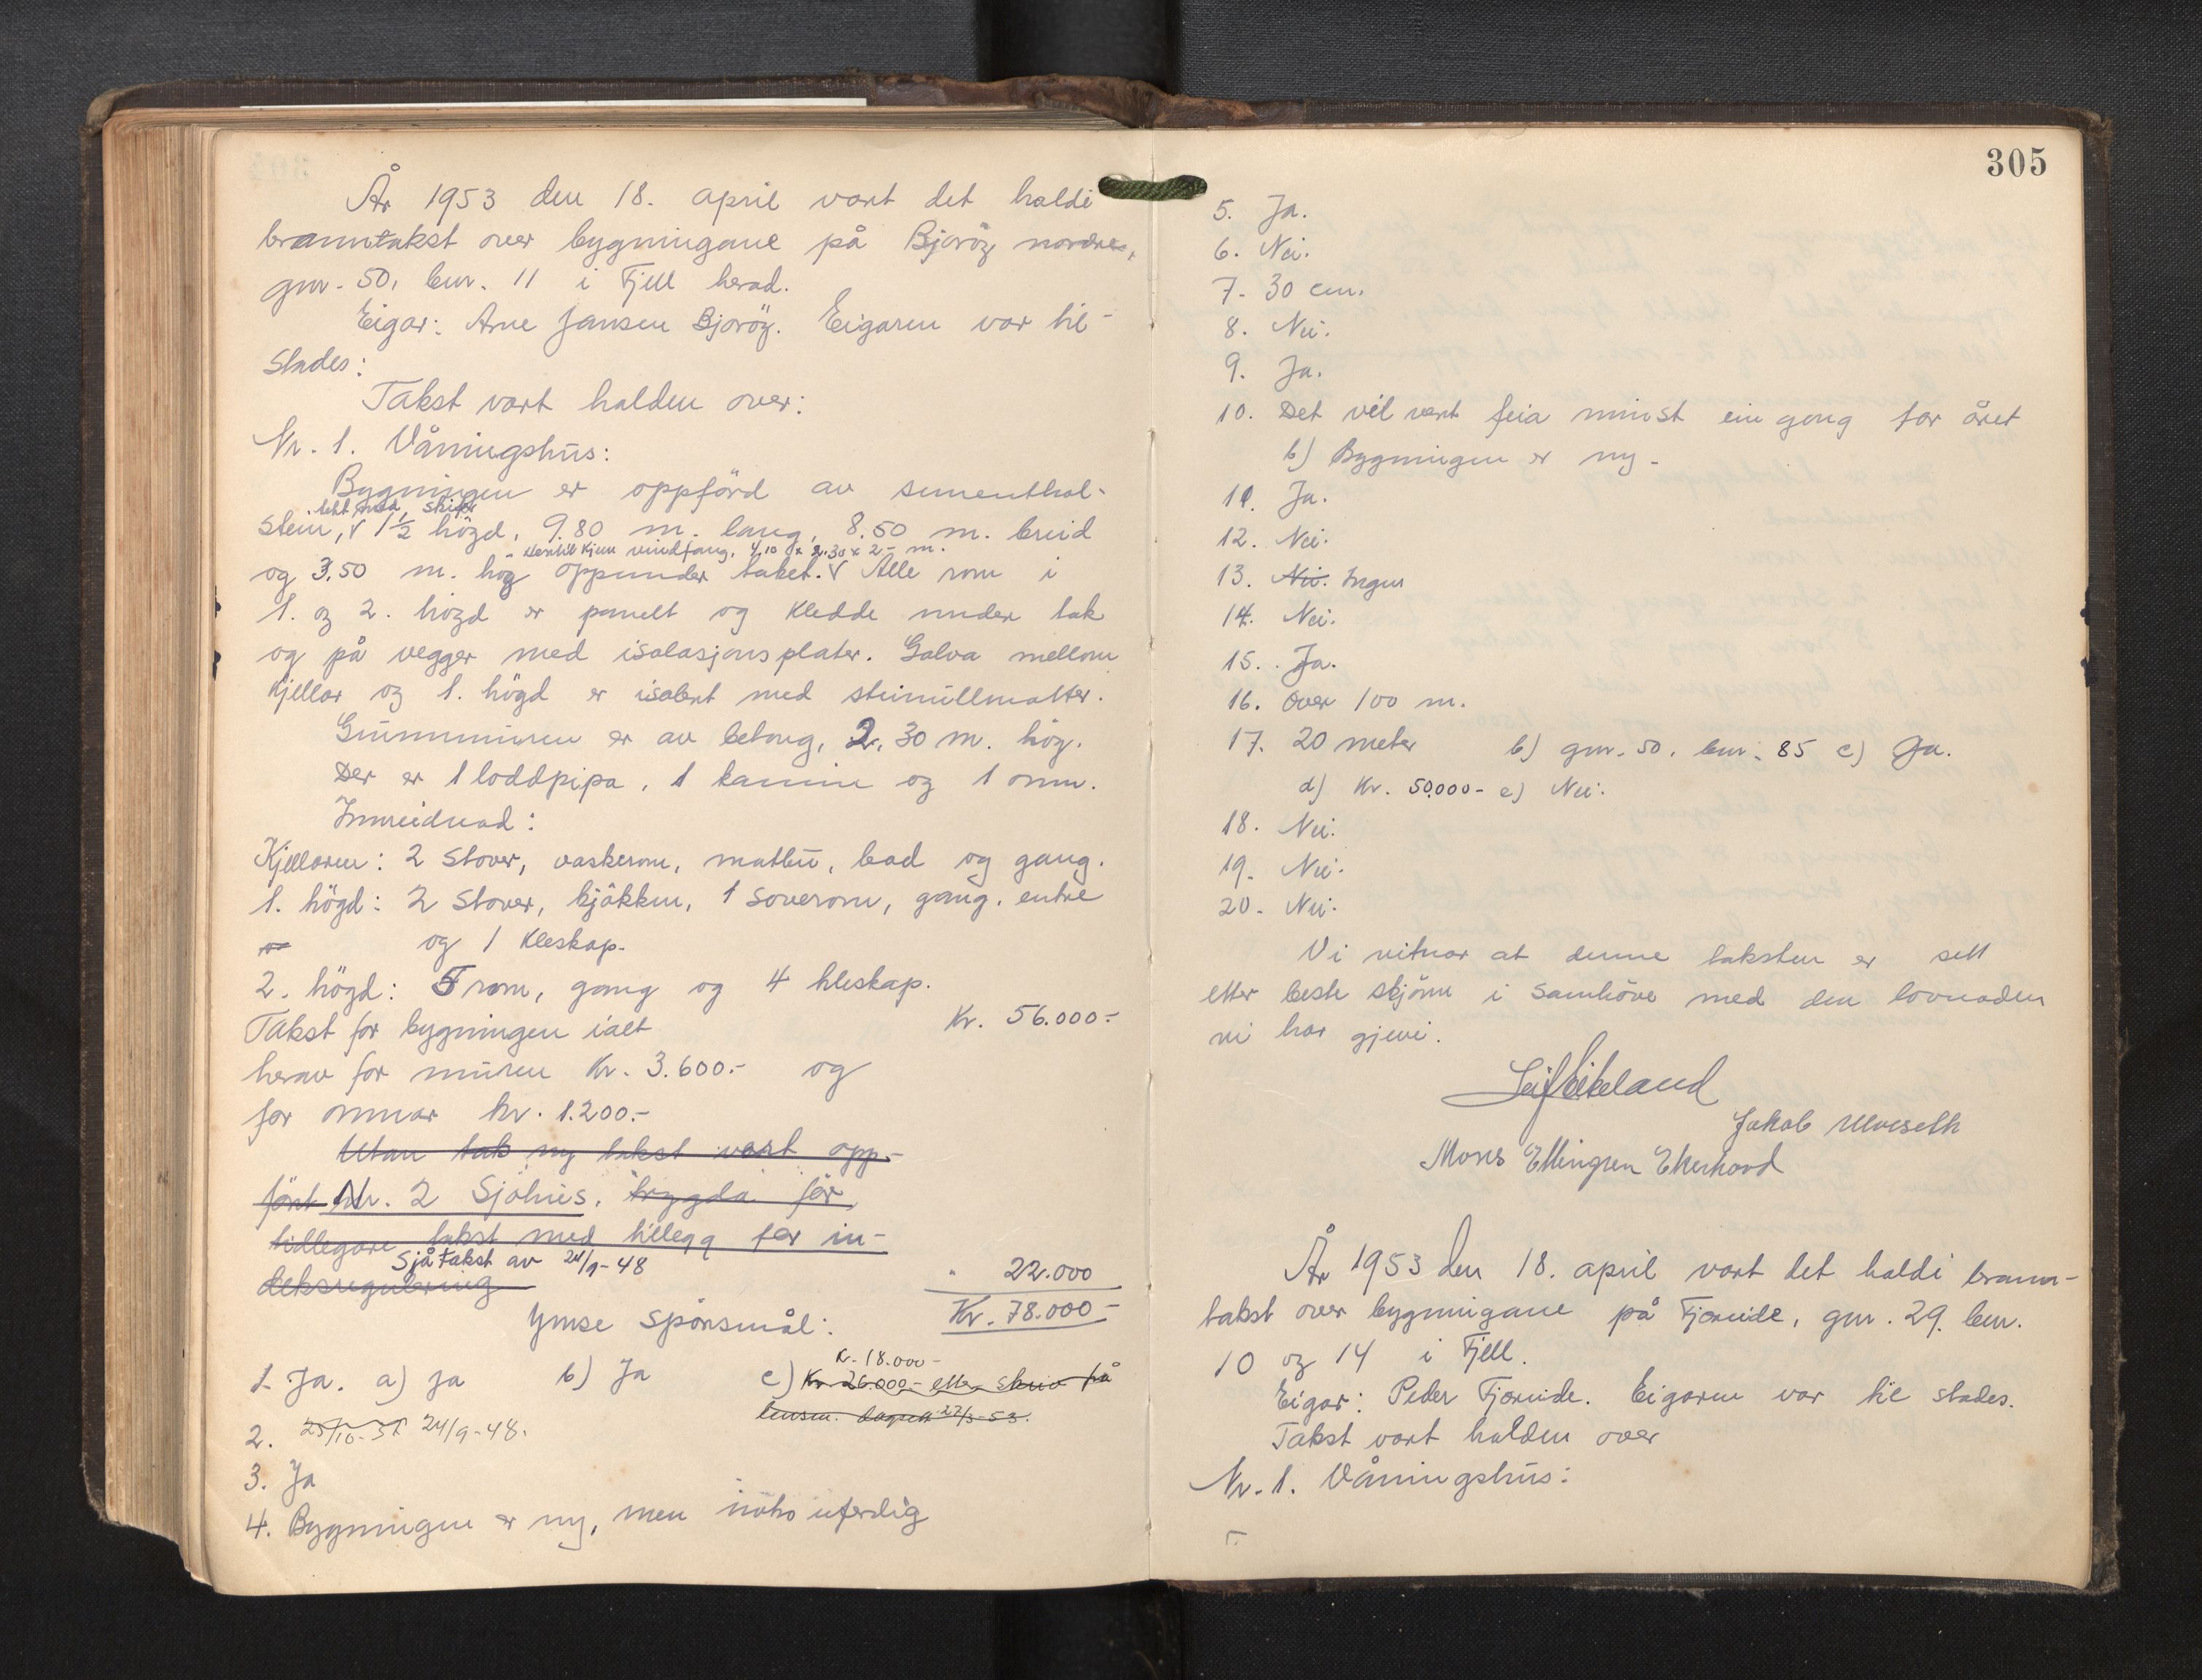 År 1953 den 18. april vart det haldi
branntakst over bygningane på Bjoröy nordre,
gnr. 50, bnr. 11 i Fjell herad.
Eigar: Arne Jansen Bjoröy. Eigaren var til-
stades:
Takst vart halden over:
Nr. 1. Våningshus:
Bygningen er oppförd av sementhol-
tekt med skifer
stein, V 1½ högd, 9.80 m. lang, 8.50 m. breid
vindfang, 4.10 x 2.30 x 2 - m.
og 3.50 m. hög oppunder taket. V Alle rom i
1. og 2. högd er panelt og kledde under tak
og på vegger med isolasjonsplater. Golva mellom
Kjellar og 1. högd er isolert med steinullmatter.
Grunnmuren er av betong, 2,30 m. hög.
Der er 1 loddpipa, 1 kamin og 1 omn.
Innreidnad:
Kjellaren: 2 stover, vaskerom, matbu, bad og gang.
1. högd: 2 stover, kjökken, 1 soverom, gang, entre
og 1 kleskap.
2. högd: 5 rom, gang og 4 kleskap.
Takst for bygningen ialt Kr. 56.000.-
herav for muren Kr. 3.600.- og
for omnar kr. 1.200.-
Utan tak ny takst vart opp-
fört Nr. 2 Sjöhus, bygda för
tidlegare takst med tillegg for in-
Sjå takst av 24/9-48
deksregulering " 22.000
Ymse spörsmål: Kr. 78.000-
Kr. 18.000-
1. Ja. a) ja b) Ja c) Kr. 26.000,- etter skriv frå
lensm. dagsett 27/3-53.
2. 25/10-37 24/9-48.
3. Ja
4. Bygningen er ny, men noko uferdig
305
5. Ja.
6. Nei.
7. 30 cm.
8. Nei.
9. Ja.
10. Det vil vert feia minst ein gong for året
b) Bygningen er ny.
11. Ja.
12. Nei.
13. Nei. Ingen
14. Nei.
15. Ja.
16. Over 100 m.
17. 20 meter b) gnr. 50, bnr. 85 c) Ja.
d) Kr. 50.000- e) Nei.
18. Nei.
19. Nei.
20. Nei.
Vi vitnar at denne taksten er sett
etter beste skjönn i samhöve med den lovnaden
vi har gjevi.
Leif Eikeland
Jakob Ulveseth
Mons Ellingsen Ekerhovd
År 1953 den 18. april vart det haldi brann-
takst over bygningane på Fjæreide, gnr. 29, bnr.
10 og 14 i Fjell.
Eigar: Peder Fjæreide. Eigaren var til stades.
Takst vart halden over
Nr. 1. Våningshus: